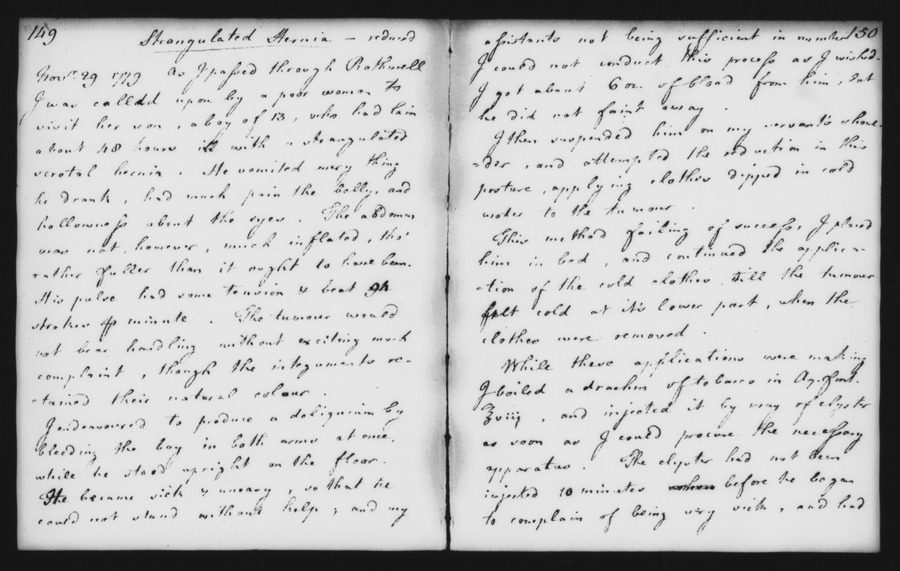 149
Strangulated Hernia — reduced
Novr. 29 1779 As I passed through Rothwell
I was callded upon by a poor woman to
visit her son, a boy of 13, who had lain
about 48 hours ill with a strangulated
scrotal hernia. He vomited every thing
he drank, had much pain the belly, and
hollowness about the eyes. The abdomen
was not, however, much inflated, tho'
rather fuller than it ought to have been.
His pulse had some tension & beat 94
strokes p minute. The tumour would
not bear handling without exciting much
complaint, though the integuments re-
-tained their natural colour.
I endeavoured to produce a deliquium by
bleeding the boy in both arms at once,
while he stood upright on the floor.
He became sick & uneasy, so that he
could not stand without help; and my
150
assistants not being sufficient in number
I could not conduct this process as I wished.
I got about 6 oz. of blood from him, but
he did not faint away.
I then suspended him on my servant's shoul-
-der, and attempted the reduction in this
posture, applying clothes dipped in cold
water to the tumour.
This method failing of success, I placed
him in bed, and continued the applica-
-tion of the cold clothes, till the tumour
felt cold at its lower part, when the
clothes were removed.
While these applications were making
I boiled a drachm of tobacco in Aq. font.
℥viij, and injected it by way of clyster
as soon as I could procure the necessary
apparatus. The clyster had not been
injected 10 minutes before he began
to complain of being very sick, and had